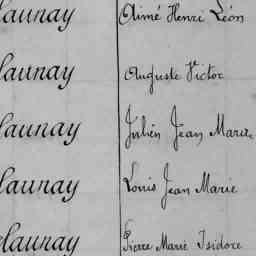 launay Aimé Henri Léon
launay Auguste Victor
launay Julien Jean Marie
launay Louis Jean Marie
elaunay Pierre Marie Isidore